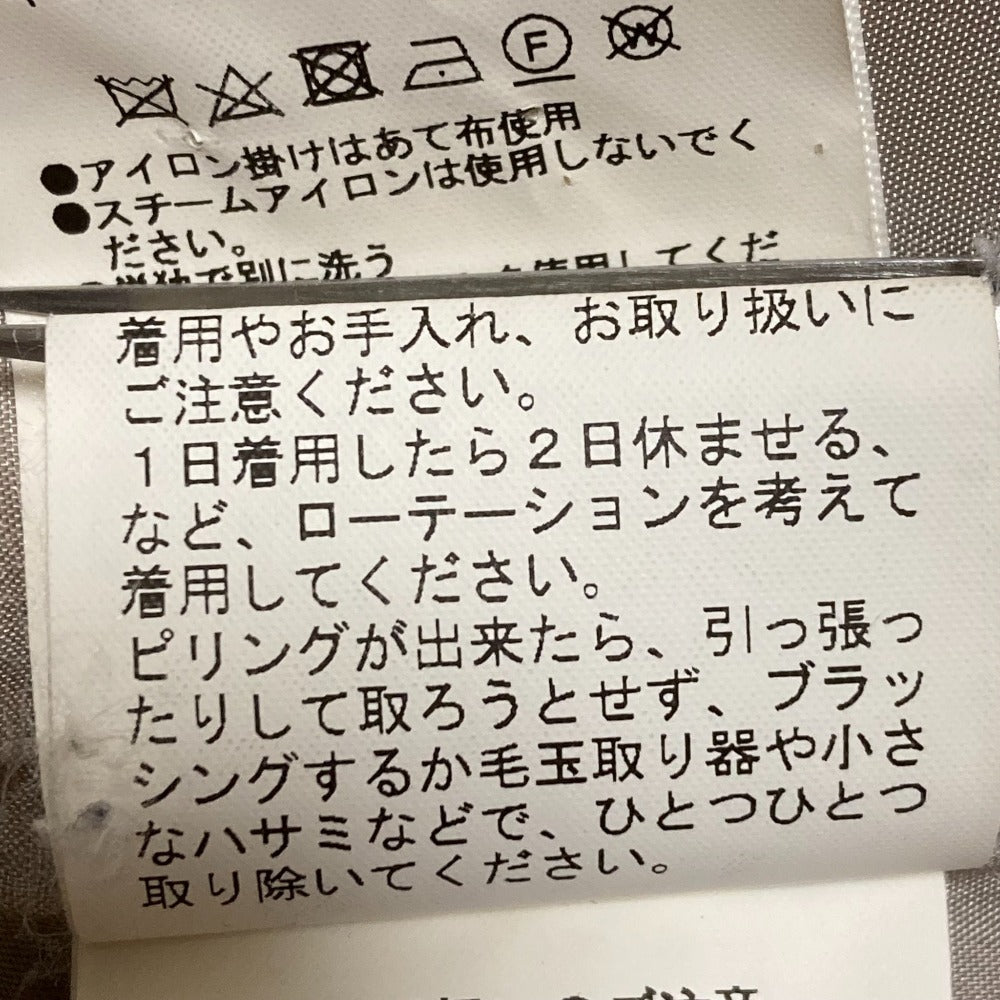 F
W
●アイロン掛けはあて布使用
●スチームアイロンは使用しないでく
ださい。
着用やお手入れ、お取り扱いに
ご注意ください。
1日着用したら2日休ませる、
など、ローテーションを考えて
着用してください。
ピリングが出来たら、引っ張っ
たりして取ろうとせず、ブラッ
シングするか毛玉取り器や小さ
なハサミなどで、ひとつひとつ
取り除いてください。
ご注意